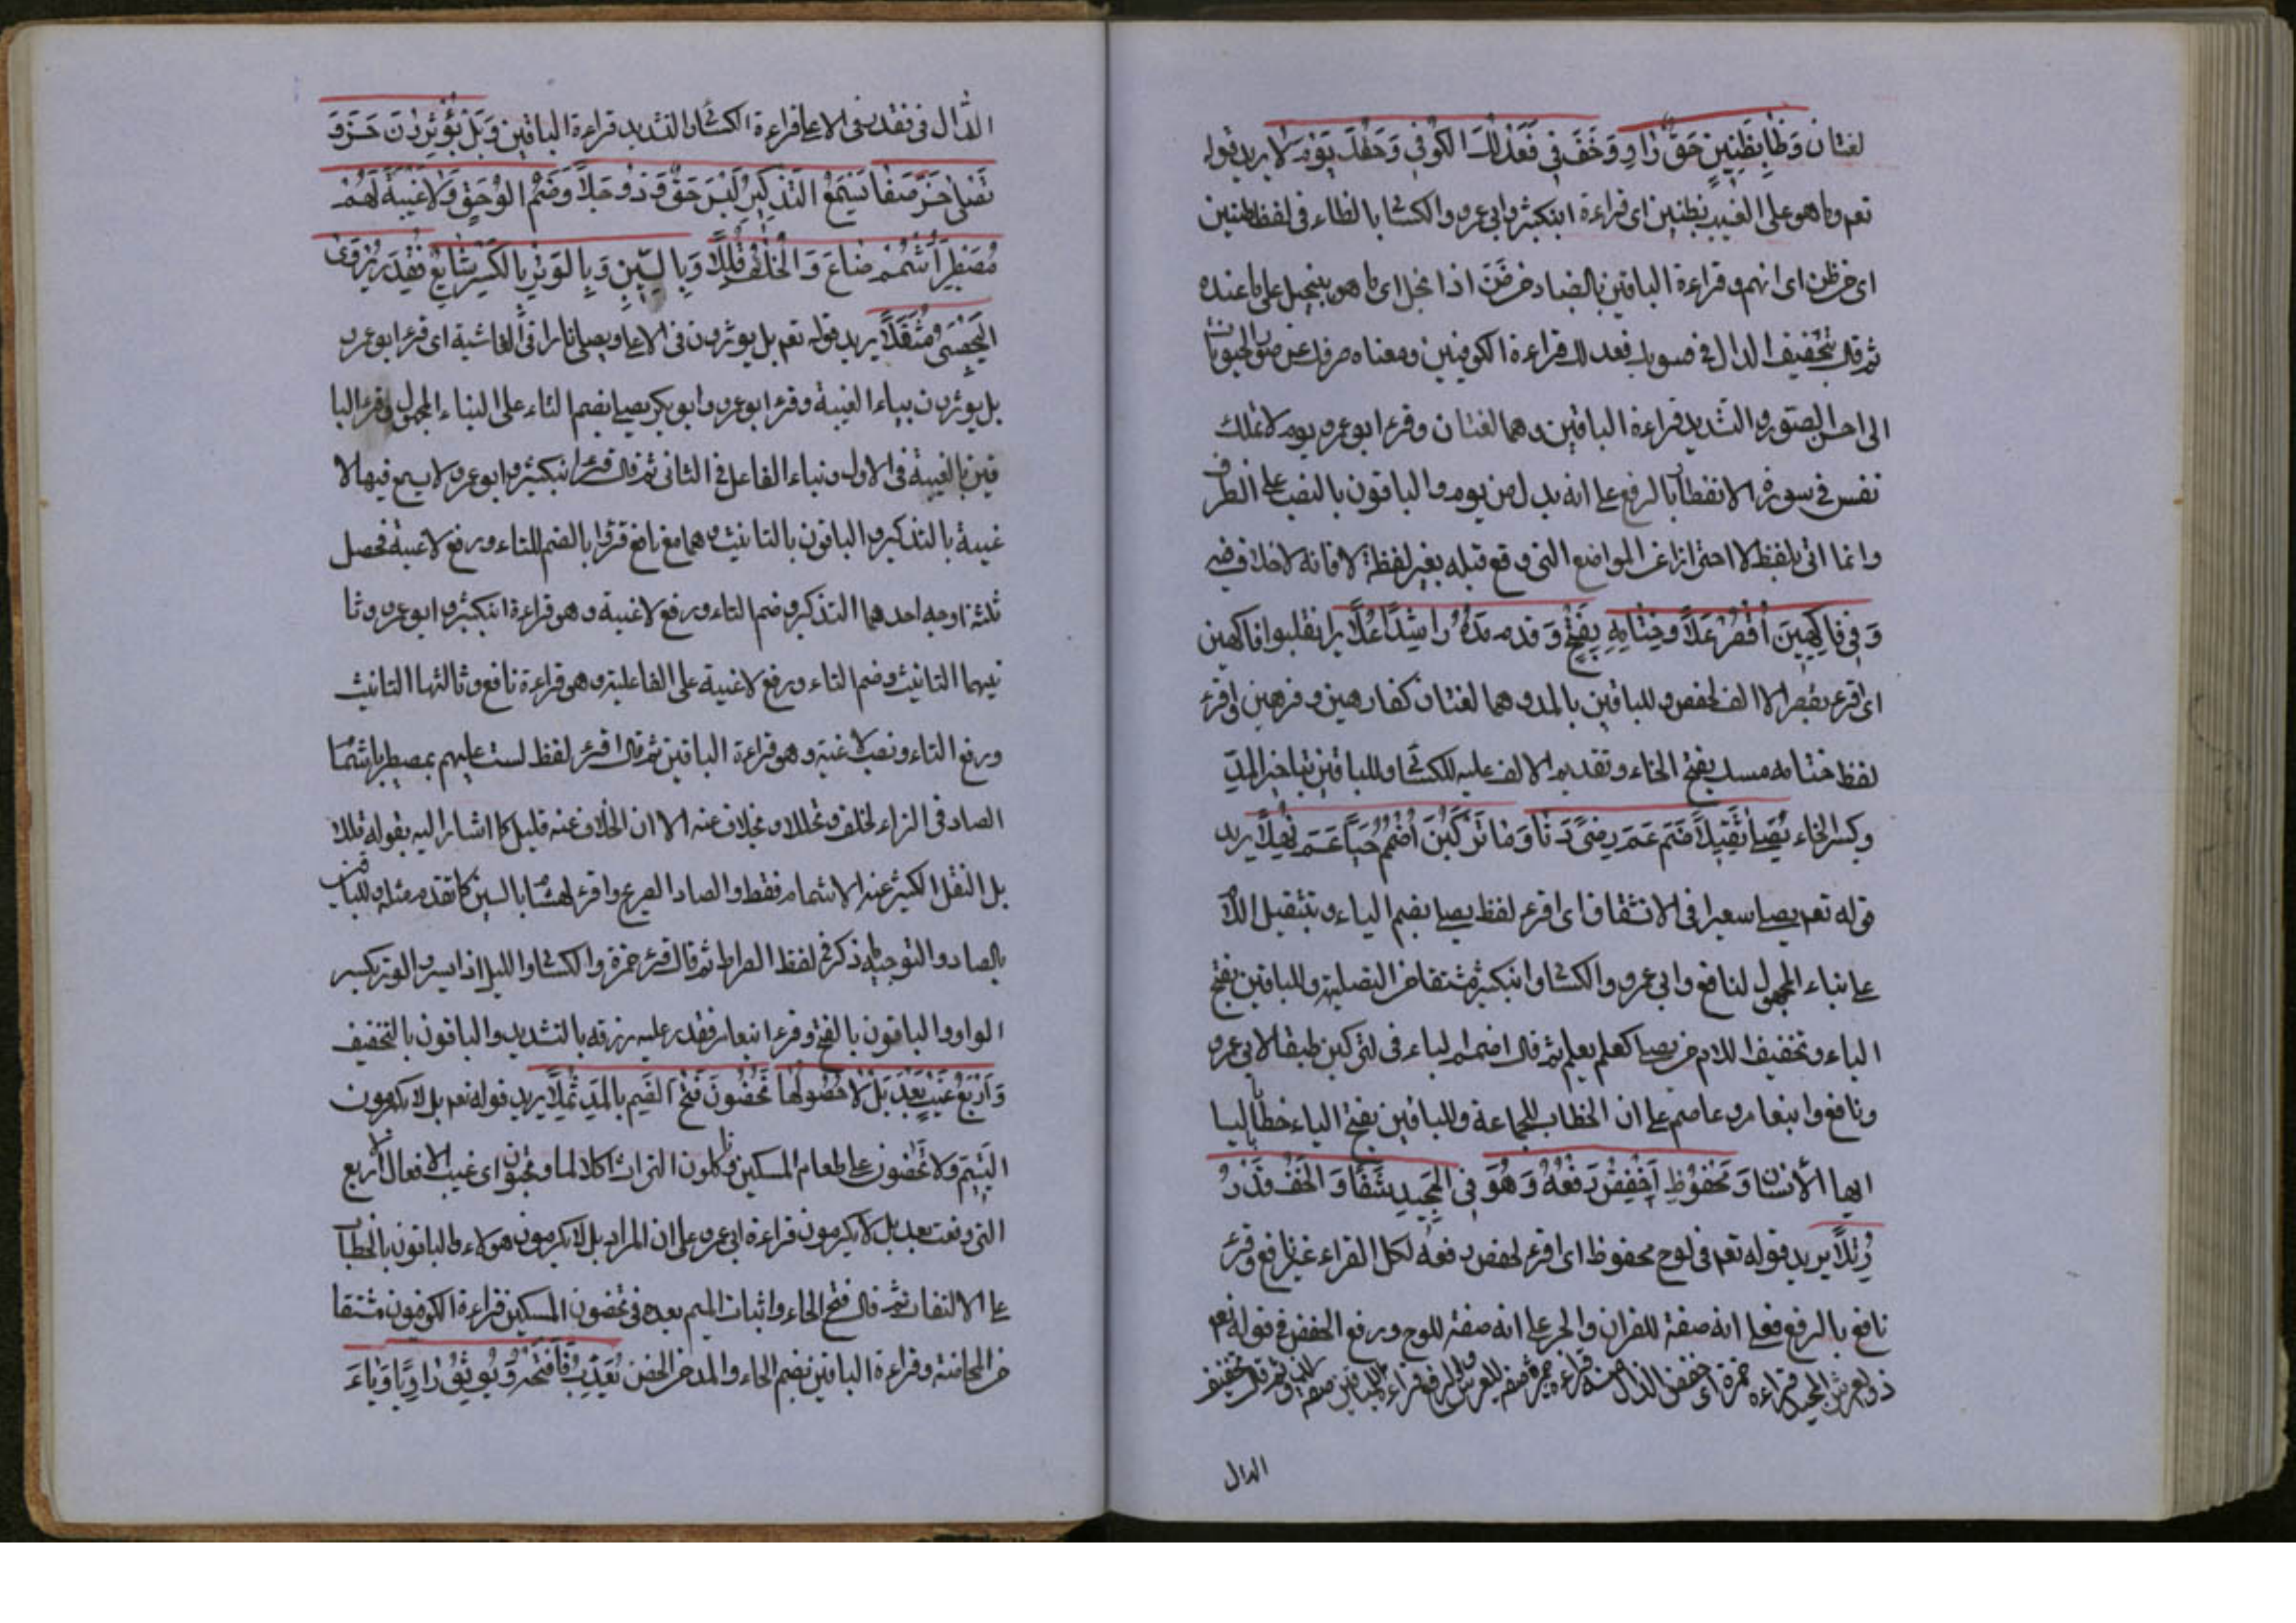 لغتان وَظَا بِظَنِينٍ حَقّ رَاوٍ وَخَفَّ فِي فَعَدَّلَكَ الكُوفِي وَحَقُّكَ يَوْمُ لَا يريد قوله
تعم وما هو على الغيب بظنين اى قراءة ابنكثير وابي عمرو والكسا بالظاء في لفظ بظنين
اى من ظن اى اتهم وقراءة الباقين بالضاد من ضن اذا بخل اى ما هو ببخيل على ما عنده
ثم قال بتخفيف الدال في فسويك فعدلك قراءة الكوفيين ومعناه صرفك عن صور الحيوانات
الى احسن الصور والتشديد قراءة الباقين وهما لغتان وقرء ابو عمرو يوم لا تملك
نفس في سورة الانفطار بالرفع على انه بدل من يوم والباقون بالنصب على الظرف
وانما اتى بلفظ لا احترازا عن المواضع التي وقع قبله بغير لفظة لا فانه لا خلاف فيه
وَفِي فَاكِهِينَ اقْصُرْ عَلًا وَخِتَامُهُ بِفَتْحٍ وَقَدِّمْ مَدَّهُ رَاشِدًا عَلَا يرا نقلبوا فاكهين
اى اقرء بقصر الالف لحفص وللباقين بالمد وهما لغتان كفارهين وفرهين واقرء
لفظ ختامه مسك بفتح الخاء وتقديم الالف عليه للكسا وللباقين بتاخير المدّ
وكسر الخاء يُصَلَّى ثَقِيلًا ضُمَّ عَمَّ رِضًى دَنَا وَبَا تَرْكَبُنَّ اضْمُمْ حَيًا عَمَّ نُهَّلًا يريد
قوله تعم يصلى سعيرا في الانشقاق اى اقرء لفظ يصلى بضم الياء وبتثقيل اللا
على بناء المجهول لنافع وابي عمرو والكسا وابنكثير مشتقا من التصلية وللباقين بفتح
الياء وتخفيف اللام من يصلى كعلم يعلم ثم قال اضمم الباء في لتركبن طبقا لابي عمرو
ونافع وابنعامر وعاصم على ان الخطاب للجماعة وللباقين بفتح الباء خطابا ليا
ايها الانسان وَمَحْفُوظٌ اخْفِضْ رَفْعَهُ وَهْوَ فِي المَجِيدِ شَفَا وَالخِفُّ قَدَّرَ
رُتِّلَا يريد قوله تعم في لوح محفوظ اى اقرء لحفض رفعه لكل القراء غير نافع وقرء
نافع بالرفع فعلى انه صفة للقران والجر على انه صفة للوح ورفع الخفض في قوله تعم
ذو العرش المجيد قراءة حمزة
الدال
الدال في فقدر في الاعلى قراءة الكسا والتشديد قراءة الباقين وَبَلْ يُؤْثِرُونَ حُزْ وَ
تَصْلَى حُزْ صَفَا تَسْمَعُ التَّذْكِيرُ لَيْسَ حَقٌّ وَذُو جِلًا وَضَمَّ اُولُو حَقٍّ وَلَاغِيَةٌ لَهُمْ
مُصَيْطِرًا اشْمِمْ ضَاعَ وَالخُلْفُ قُلِّلَا وَبِالسِّينِ وَبِالوَتْرِ بِالكَسْرِ شَايِعٌ فَقَدَّرَ يُرْوَى
اليَحْصُبِيّ مُثَقَّلًا يريد قوله تعم بل يوثرون في الاعلى ويصلى نارا في الغاشية اى قرء ابو عمرو
بل يوثرون بياء الغيبة وقرء ابو عمرو وابو بكر يصلى بضم التاء على البناء المجهول وقرء البا
قين بالغيبة في الاول وبناء الفاعل في الثاني ثم قال قرء ابنكثير وابو عمرو لا يسمع فيها لا
غيبة بالتذكير والباقون بالتانيث وهما مع نافع قرؤا بالضم للتاء ورفع لاغيبة فحصل
ثلثة اوجه احدهما التذكير وضم التاء ورفع لاغيبة وهو قراءة ابنكثير وابو عمرو وثا
نيهما التانيث وضم التاء ورفع لاغيبة على الفاعلية وهو قراءة نافع وثالثها التانيث
ورفع التاء ونصب لاغية وهو قراءة الباقين ثم قال اقرء لفظ لست عليهم بمصيطر باشما
الصاد في الزاء لخلف وخلاد وبخلاف عنه الا ان الخلاف عنه قليل كما اشار اليه بقوله قللا
بل النقل الكثير عنه الاشمام فقط والصاد الصريح واقرء لهشا بالسين كما تقدم مثله وللباقين
بالصاد والتوجيه ما ذكر في لفظ الصراط ثم قال قرء حمزة والكسا والليل اذا يسر والوتر بكسر
الواو والباقون بالفتح وقرء ابنعامر فقدر عليه رزقه بالتشديد والباقون بالتخفيف
وَاَرْبَعُ غَيْبٍ بَعْدَ بَلْ لَا حُصُولُهَا تَحُضُّونَ فَتْحُ الضَّمِّ بِالمَدِّ ثُمِّلَا يريد قوله تعم بل لا تكرمون
اليتيم ولا تحضون على طعام المسكين وتاكلون التراث اكلا لما وتحبون اى غيب الافعال الاربع
التي وقعت بعد بل لا يكرمون قراءة ابي عمرو على ان المراد بل لا يكرمون هولاء والباقون بالخطاب
على الالتفات ثم قال فتح الحاء واثبات الميم بعده في تحضون المسكين قراءة الكوفيون مشتقا
من المحاضة وقراءة الباقين بضم الحاء والمد من الحض يُعَذِّبُ فَافْتَحْهُ وَيُوثِقُ رَاوِيًا وَيَاءَ